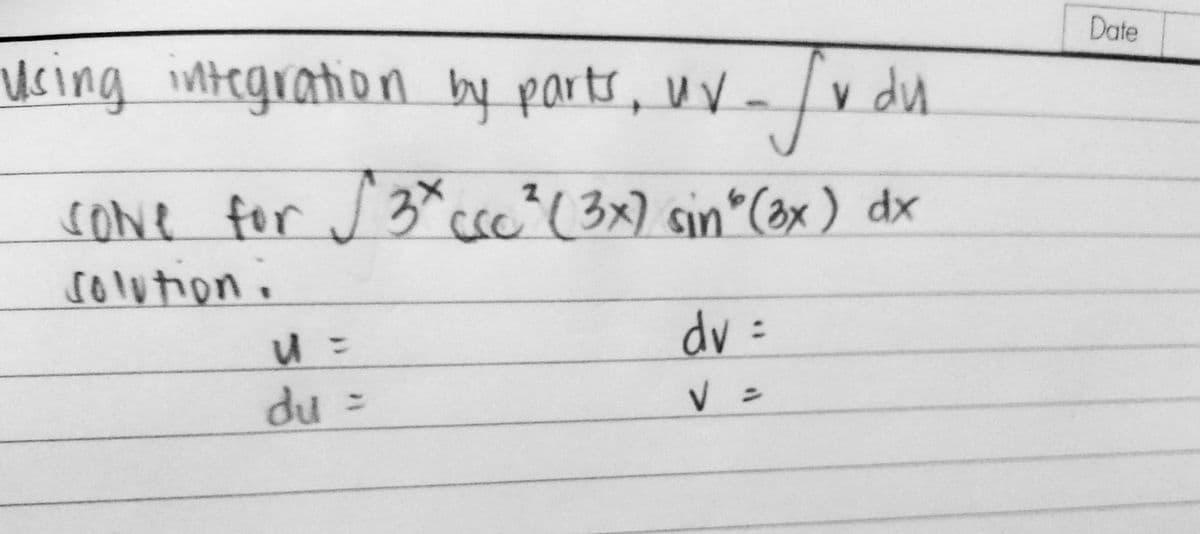 Date
Using integration by parts, uv - ∫v du
solve for ∫3ˣ csc²(3x) sin⁶(3x) dx
solution:
u = dv =
du = v =